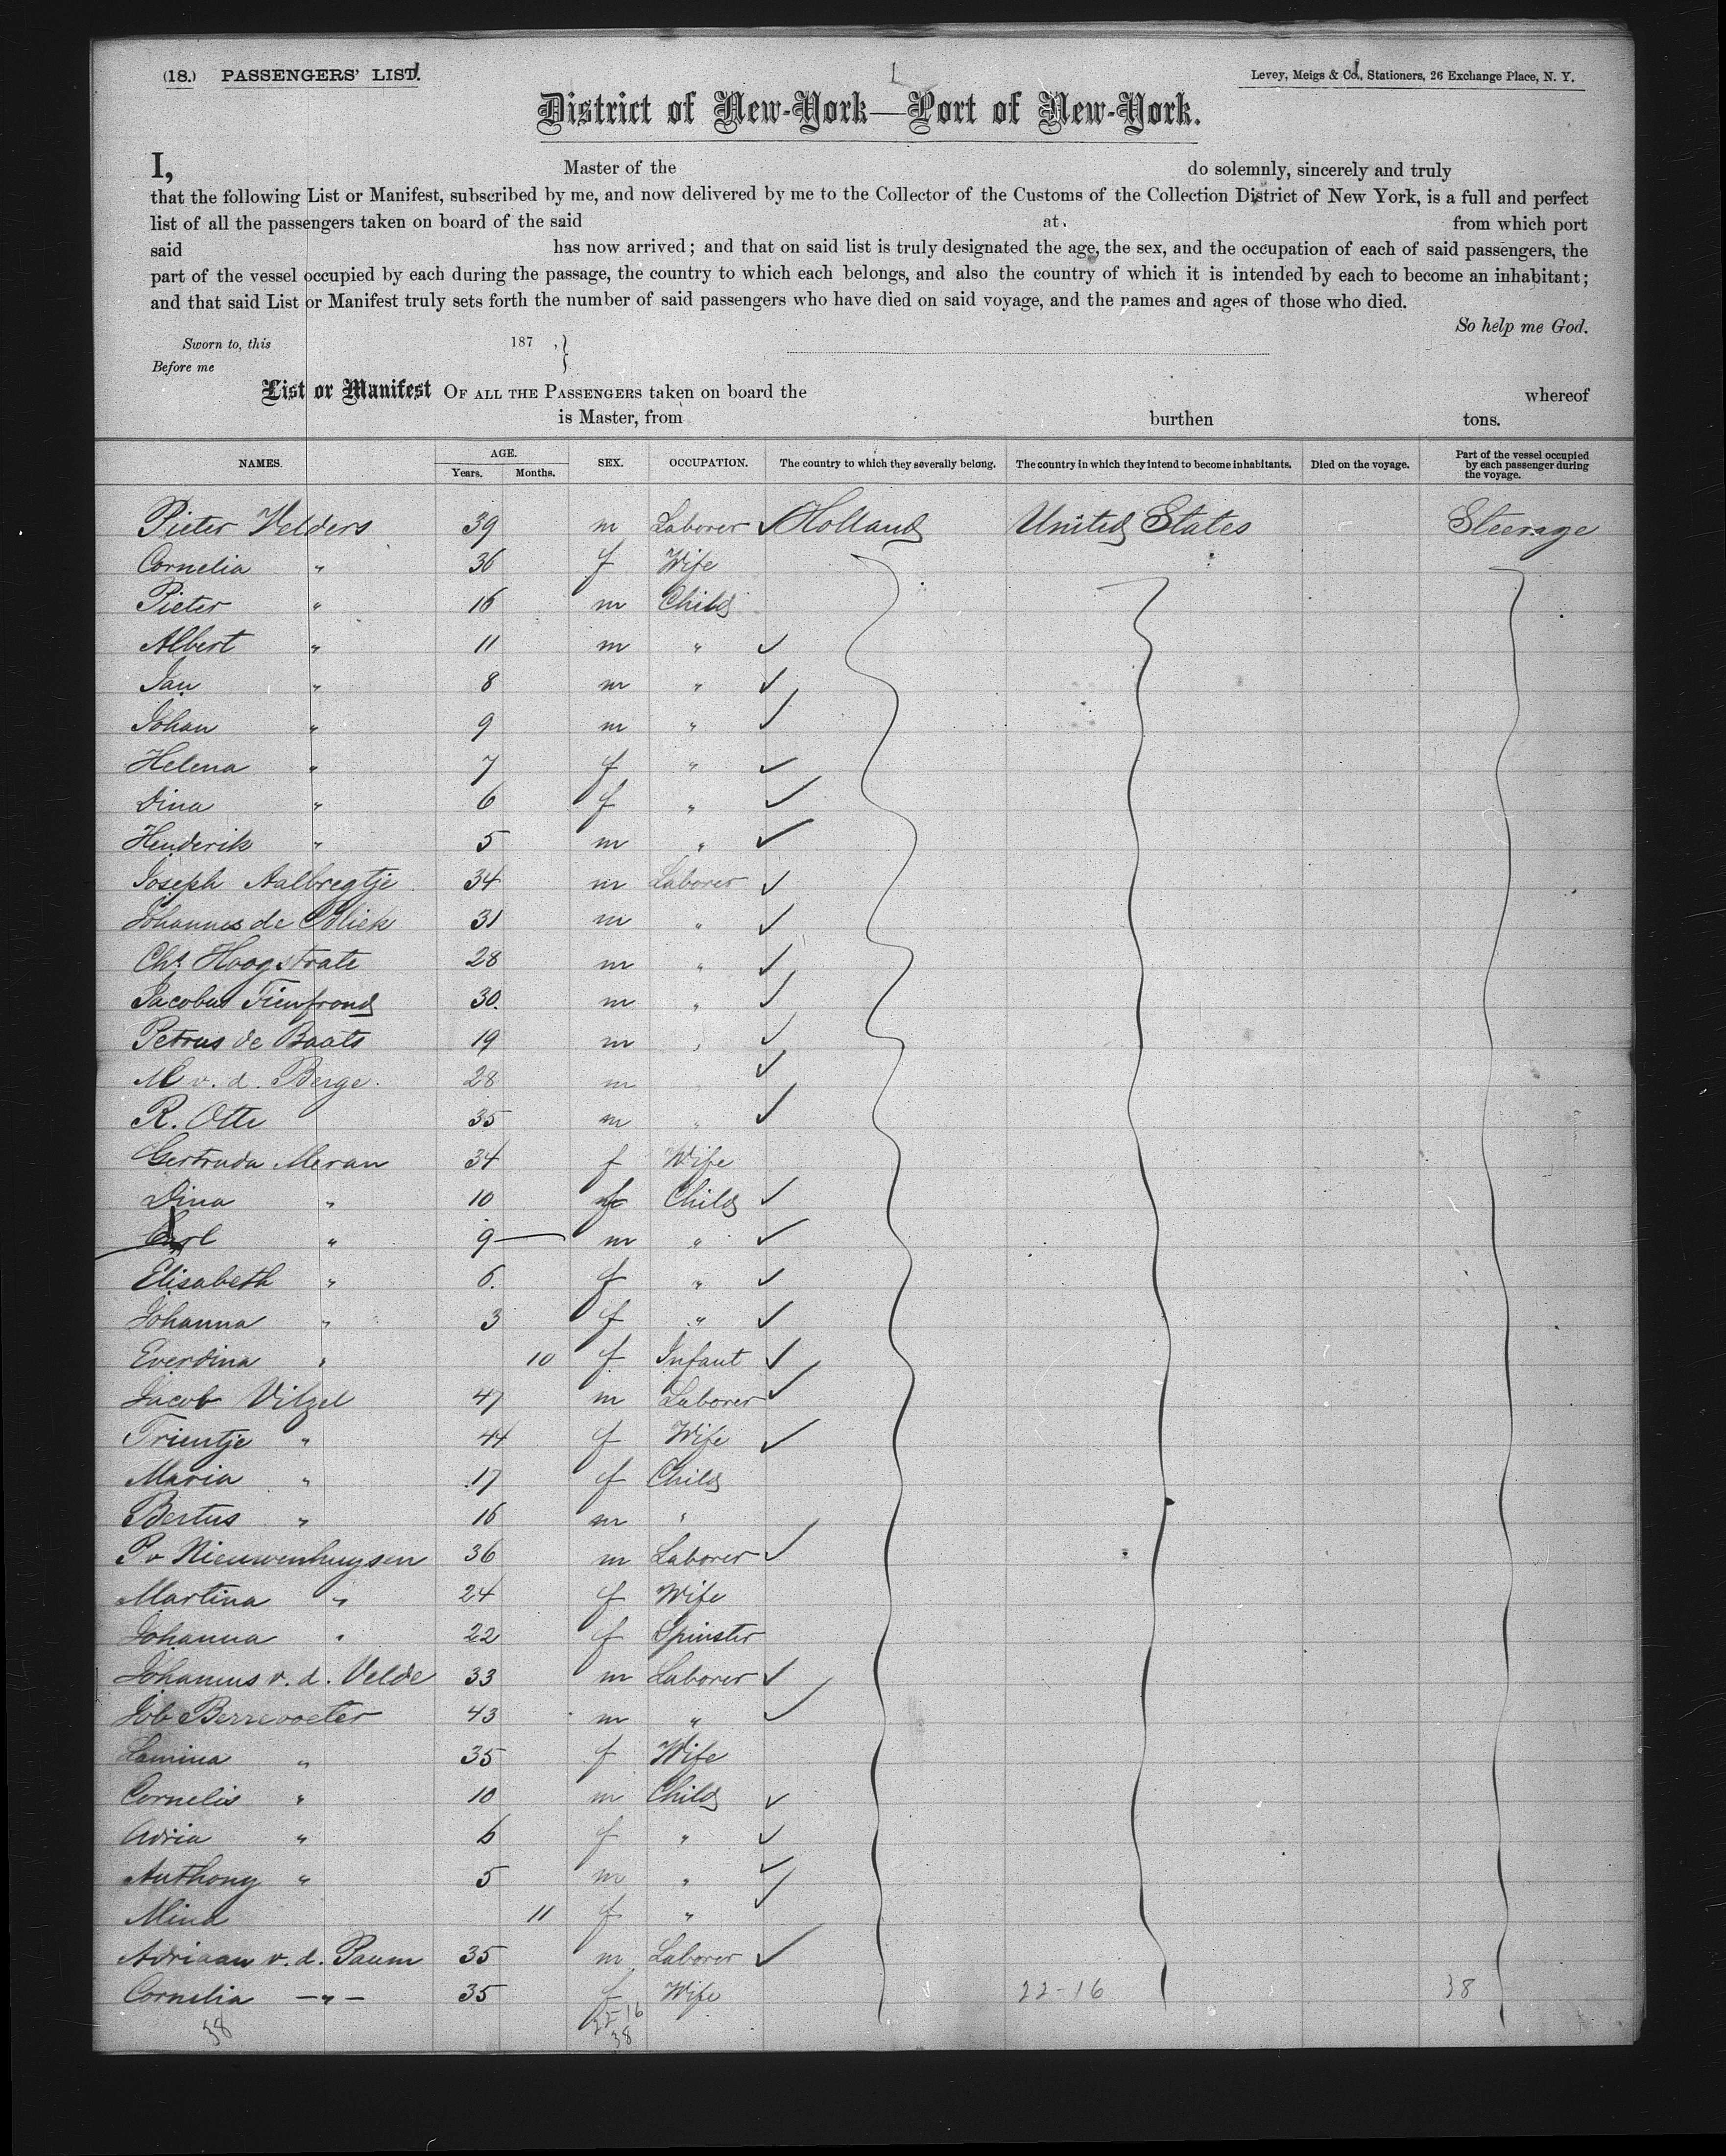 (18.) PASSENGERS' LIST.
Levey, Meigs & Co., Stationers, 26 Exchange Place, N. Y.
District of New-York—Port of New-York.
I, Master of the do solemnly, sincerely and truly
that the following List or Manifest, subscribed by me, and now delivered by me to the Collector of the Customs of the Collection District of New York, is a full and perfect
list of all the passengers taken on board of the said at from which port
said has now arrived; and that on said list is truly designated the age, the sex, and the occupation of each of said passengers, the
part of the vessel occupied by each during the passage, the country to which each belongs, and also the country of which it is intended by each to become an inhabitant;
and that said List or Manifest truly sets forth the number of said passengers who have died on said voyage, and the names and ages of those who died.
So help me God.
Sworn to, this 187 , }
Before me
List or Manifest OF ALL THE PASSENGERS taken on board the whereof
is Master, from burthen tons.
NAMES. AGE. Years. Months. SEX. OCCUPATION. The country to which they severally belong. The country in which they intend to become inhabitants. Died on the voyage. Part of the vessel occupied by each passenger during the voyage.
Pieter Velders 39 m Laborer ✓ Holland United States Steerage
Cornelia " 36 f Wife
Pieter " 16 m Child
Albert " 11 m " ✓
Jan " 8 m " ✓
Johan " 9 m " ✓
Helena " 7 f " ✓
Dina " 6 f " ✓
Henderik " 5 m " ✓
Joseph Aalbregtje 34 m Laborer ✓
Johannes de 31 m " ✓
Chs. Hoogstrate 28 m " ✓
Jacobus 30. m " ✓
Petrus de Baats 19 m " ✓
M v. d. Berge. 28 m ✓
R. Otte 35 m " ✓
Gertruda Meran 34 f Wife
Dina " 10 f Child ✓
Carl " 9 m " ✓
Elisabeth " 6. f " ✓
Johanna " 3 f " ✓
Everdina " 10 f Infant ✓
Jacob Vilzel 47 m Laborer ✓
Trientje " 44 f Wife ✓
Maria " 17 f Child
Bertus " 16 m "
P v Nieuwenhuysen 36 m Laborer ✓
Martina " 24 f Wife
Johanna " 22 f Spinster
Johannes v. d. Velde 33 m Laborer ✓
Job Berrevoeter 43 m " ✓
Lamina " 35 f Wife
Cornelis " 10 m Child ✓
Adria " 6 f " ✓
Anthony " 5 m " ✓
Mina 11 f " ✓
Adriaan v. d. Paum 35 m Laborer ✓
Cornelia —"— 35 f Wife 22-16 38
38 22-16
38